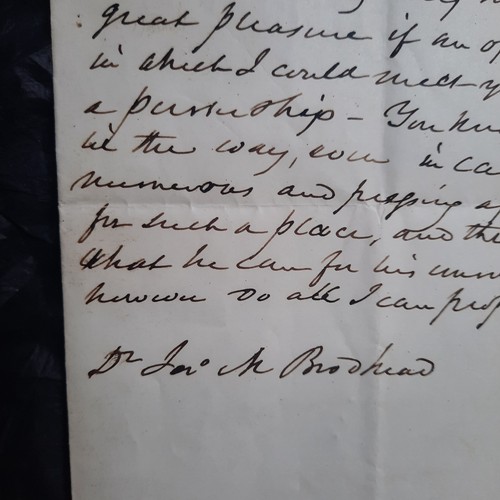 great pleasure if an op
in which I could meet y
a pursership - You kn
in the way, even in ca
numerous and pressing a
for such a place, and the
what he can for his
however do all I can prop
Dr Jno M Brodhead